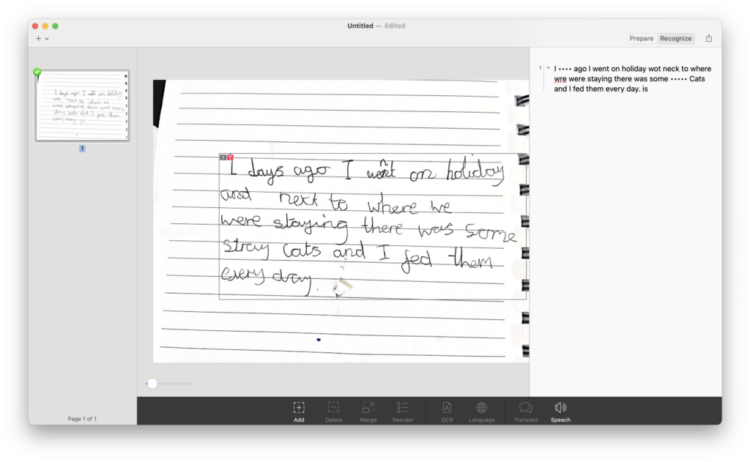 Untitled — Edited
Prepare
Recognize
1
Page 1 of 1
days ago I went on holiday
and next to where we
were staying there was some
stray cats and I fed them
every day.
1 I •••• ago I went on holiday wot neck to where
wre were staying there was some ••••• Cats
and I fed them every day. is
Add
Delete
Merge
Reorder
OCR
Language
Translate
Speech